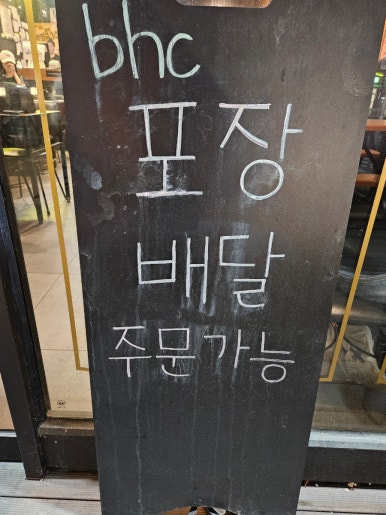 bhc
포장
배달
주문가능